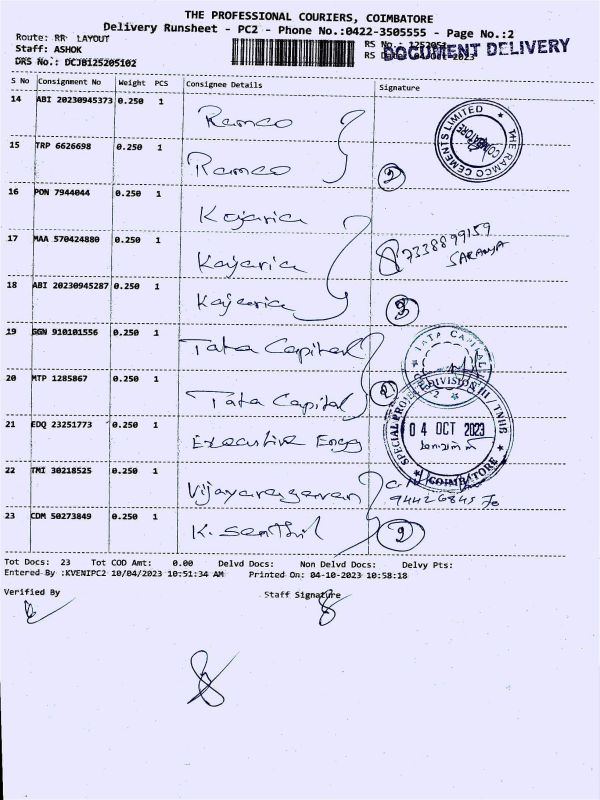 THE PROFESSIONAL COURIERS, COIMBATORE
Delivery Runsheet - PC2 - Phone No.:0422-3505555 - Page No.:2
Route: RR LAYOUT
RS No.:
Staff: ASHOK
DOCUMENT DELIVERY
DRS No.: DCJ0125205102
S No Consignment No Weight PCS Consignee Details Signature
14 ABI 20230945373 0.250 1 Ramco
THE RAMCO CEMENTS LIMITED
15 TRP 6626698 0.250 1 Ramco 2
16 PON 7944044 0.250 1 Kajaria
17 MAA 570424880 0.250 1 Kajaria 7338899159
SARANYA
18 ABI 20230945287 0.250 1 Kajaria 3
19 GGN 910101556 0.250 1 Tata Capital
TATA CAPITAL
20 MTP 1285867 0.250 1 Tata Capital 2
SPECIAL PROJECT DIVISION III / TNHB
04 OCT 2023
COIMBATORE
21 EDQ 23251773 0.250 1 Executive Engg
22 TMI 30218525 0.250 1 Vijayarengawan
23 CDM 50273849 0.250 1 K. Senthil 2
Tot Docs: 23 Tot COD Amt: 0.00 Delvd Docs: Non Delvd Docs: Delvy Pts:
Entered By :KVENIPC2 10/04/2023 10:51:34 AM Printed On: 04-10-2023 10:58:18
Verified By Staff Signature